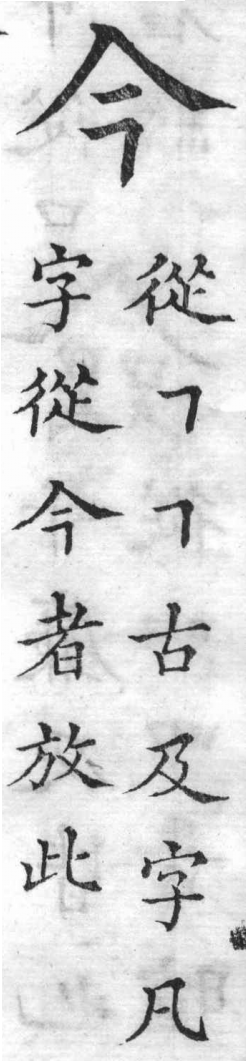 今
從㇕㇕古及字凡
字從今者放此